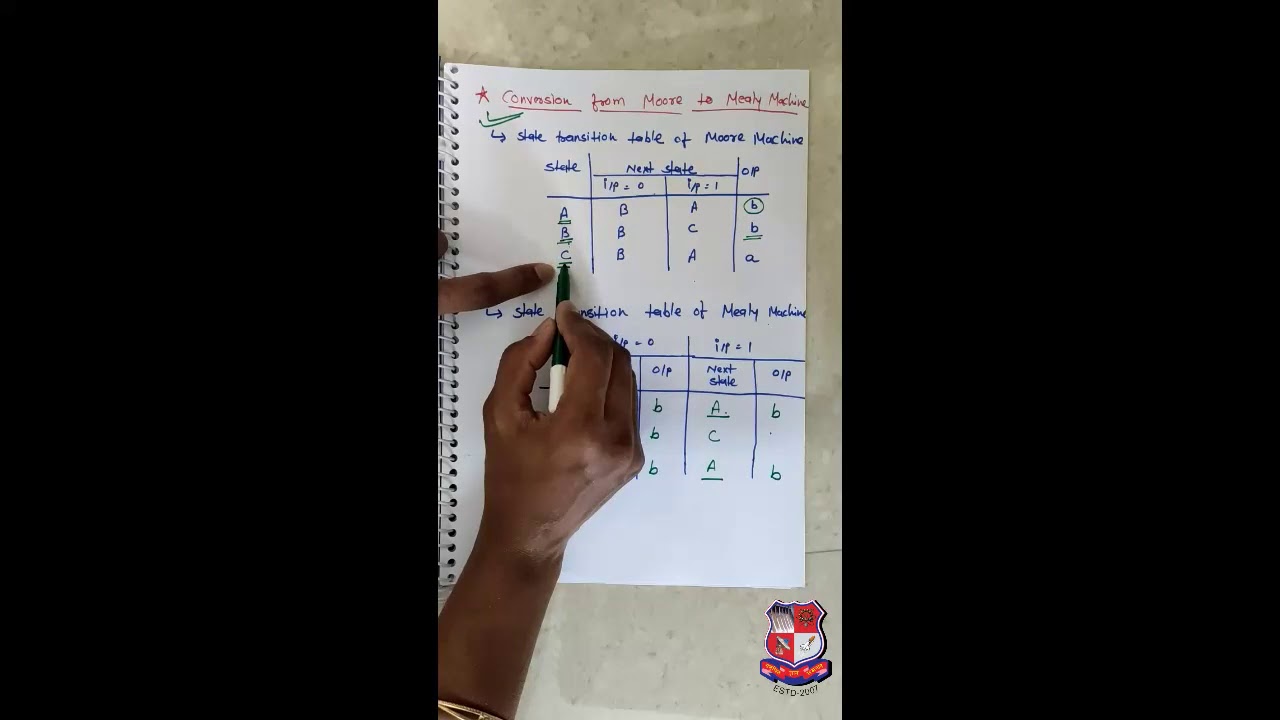 ★ Conversion from Moore to Mealy Machine
↳ State transition table of Moore Machine
State Next state O/P
i/p = 0 i/p = 1
A B A b
B B C b
C B A a
↳ State transition table of Mealy Machine
i/p = 0 i/p = 1
O/P Next state O/P
b A. b
b C
b A b
ESTD-2007